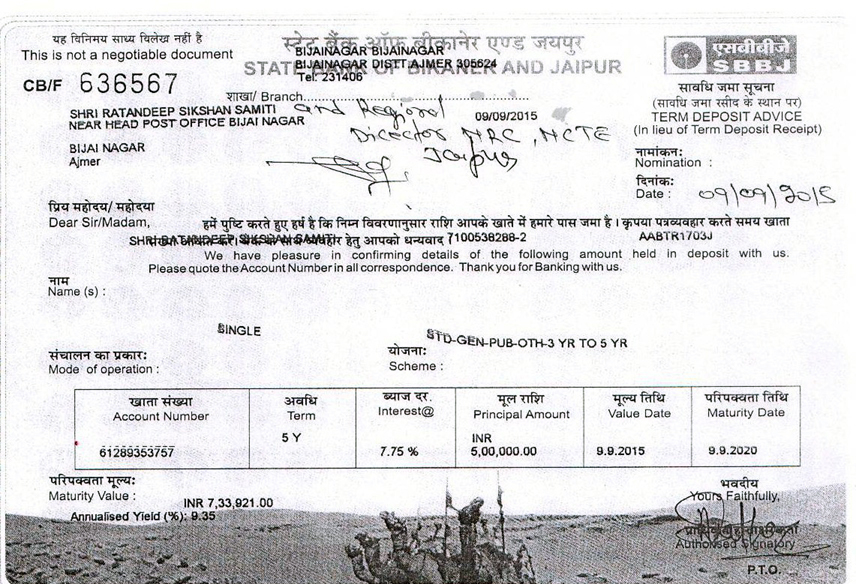 यह विनिमय साध्य विलेख नहीं है
This is not a negotiable document
CB/F 636567
स्टेट बैंक ऑफ बीकानेर एण्ड जयपुर
BIJAINAGAR BIJAINAGAR
STATE BANK OF BIKANER AND JAIPUR
BIJAINAGAR DISTT AJMER 305624
Tel: 231406
एसबीबीजे
SBBJ
शाखा/ Branch
सावधि जमा सूचना
(सावधि जमा रसीद के स्थान पर)
TERM DEPOSIT ADVICE
(In lieu of Term Deposit Receipt)
SHRI RATANDEEP SIKSHAN SAMITI and Regional 09/09/2015
NEAR HEAD POST OFFICE BIJAI NAGAR Director NRC, NCTE
BIJAI NAGAR Jaipur
Ajmer
नामांकन:
Nomination :
दिनांक:
Date : 09/09/2015
प्रिय महोदय/ महोदया
Dear Sir/Madam,
हमें पुष्टि करते हुए हर्ष है कि निम्न विवरणानुसार राशि आपके खाते में हमारे पास जमा है। कृपया पत्रव्यवहार करते समय खाता
SHRI RATANDEEP SIKSHAN SAMITI हेतु आपको धन्यवाद 7100538288-2 AABTR1703J
We have pleasure in confirming details of the following amount held in deposit with us.
Please quote the Account Number in all correspondence. Thank you for Banking with us.
नाम
Name (s) :
SINGLE
STD-GEN-PUB-OTH-3 YR TO 5 YR
संचालन का प्रकार:
Mode of operation :
योजना:
Scheme :
खाता संख्या अवधि ब्याज दर. मूल राशि मूल्य तिथि परिपक्वता तिथि
Account Number Term Interest@ Principal Amount Value Date Maturity Date
5 Y INR
61289353757 7.75 % 5,00,000.00 9.9.2015 9.9.2020
परिपक्वता मूल्य:
Maturity Value :
INR 7,33,921.00
Annualised Yield (%): 9.35
भवदीय
Yours Faithfully,
Authorised Signatory
P.T.O.